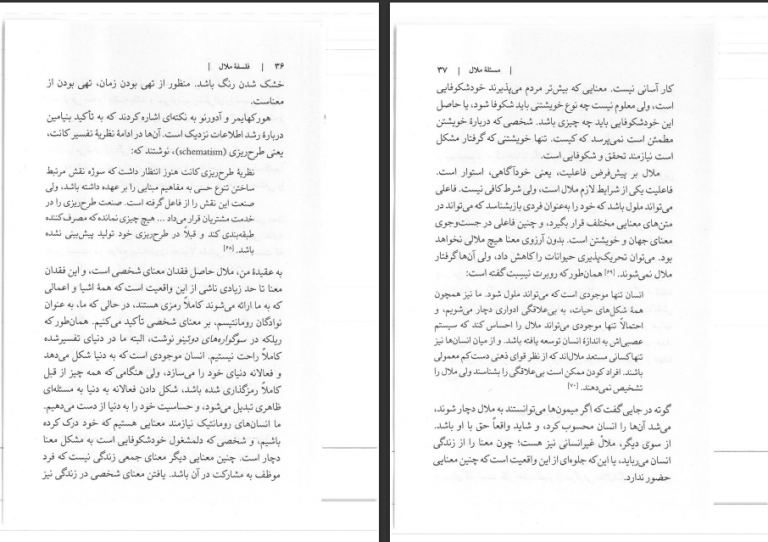 ۳۶ | فلسفهٔ ملال |
خشک شدن رنگ باشد. منظور از تهی بودن زمان، تهی بودن از
معناست.
هورکهایمر و آدورنو به نکته‌ای اشاره کردند که به تأکید بنیامین
دربارهٔ رشد اطلاعات نزدیک است. آن‌ها در ادامهٔ نظریهٔ تفسیر کانت،
یعنی طرح‌ریزی (schematism)، نوشتند که:
نظریهٔ طرح‌ریزی کانت هنوز انتظار داشت که سوژه نقش مرتبط
ساختن تنوع حسی به مفاهیم مبنایی را بر عهده داشته باشد، ولی
صنعت این نقش را از فاعل گرفته است. صنعت طرح‌ریزی را در
خدمت مشتریان قرار می‌داد ... هیچ چیزی نمانده که مصرف‌کننده
طبقه‌بندی کند و قبلاً در طرح‌ریزی خود تولید پیش‌بینی نشده
باشد. [۶۸]
به عقیدهٔ من، ملال حاصل فقدان معنای شخصی است، و این فقدان
معنا تا حد زیادی ناشی از این واقعیت است که همهٔ اشیا و اعمالی
که به ما ارائه می‌شوند کاملاً رمزی هستند، در حالی که ما، به عنوان
نوادگان رومانتیسم، بر معنای شخصی تأکید می‌کنیم. همان‌طور که
ریلکه در سوگواره‌های دوئینو نوشت، البته ما در دنیای تفسیرشده
کاملاً راحت نیستیم. انسان موجودی است که به دنیا شکل می‌دهد
و فعالانه دنیای خود را می‌سازد، ولی هنگامی که همه چیز از قبل
کاملاً رمزگذاری شده باشد، شکل دادن فعالانه به دنیا به مسئله‌ای
ظاهری تبدیل می‌شود، و حساسیت خود را به دنیا از دست می‌دهیم.
ما انسان‌های رومانتیک نیازمند معنایی هستیم که خود درک کرده
باشیم، و شخصی که دلمشغول خودشکوفایی است به مشکل معنا
دچار است. چنین معنایی دیگر معنای جمعی زندگی نیست که فرد
موظف به مشارکت در آن باشد. یافتن معنای شخصی در زندگی نیز
| مسئلهٔ ملال | ۳۷
کار آسانی نیست. معنایی که بیش‌تر مردم می‌پذیرند خودشکوفایی
است، ولی معلوم نیست چه نوع خویشتنی باید شکوفا شود، یا حاصل
این خودشکوفایی باید چه چیزی باشد. شخصی که دربارهٔ خویشتن
مطمئن است نمی‌پرسد که کیست. تنها خویشتنی که گرفتار مشکل
است نیازمند تحقق و شکوفایی است.
ملال بر پیش‌فرض فاعلیت، یعنی خودآگاهی، استوار است.
فاعلیت یکی از شرایط لازم ملال است، ولی شرط کافی نیست. فاعلی
می‌تواند ملول باشد که خود را به‌عنوان فردی بازبشناسد که می‌تواند در
متن‌های معنایی مختلف قرار بگیرد، و چنین فاعلی در جست‌وجوی
معنای جهان و خویشتن است. بدون آرزوی معنا هیچ ملالی نخواهد
بود. می‌توان تحریک‌پذیری حیوانات را کاهش داد، ولی آن‌ها گرفتار
ملال نمی‌شوند. [۶۹] همان‌طور که روبرت نیسبت گفته است:
انسان تنها موجودی است که می‌تواند ملول شود. ما نیز همچون
همهٔ شکل‌های حیات، به بی‌علاقگی ادواری دچار می‌شویم، و
احتمالاً تنها موجودی می‌تواند ملال را احساس کند که سیستم
عصبی‌اش به اندازهٔ انسان توسعه یافته باشد. و از میان انسان‌ها نیز
تنها کسانی مستعد ملال‌اند که از نظر قوای ذهنی دست‌کم معمولی
باشند. افراد کودن ممکن است بی‌علاقگی را بشناسند ولی ملال را
تشخیص نمی‌دهند. [۷۰]
گوته در جایی گفت که اگر میمون‌ها می‌توانستند به ملال دچار شوند،
می‌شد آن‌ها را انسان محسوب کرد، و شاید واقعاً حق با او باشد.
از سوی دیگر، ملال غیرانسانی نیز هست؛ چون معنا را از زندگی
انسان می‌رباید، یا این‌که جلوه‌ای از این واقعیت است که چنین معنایی
حضور ندارد.